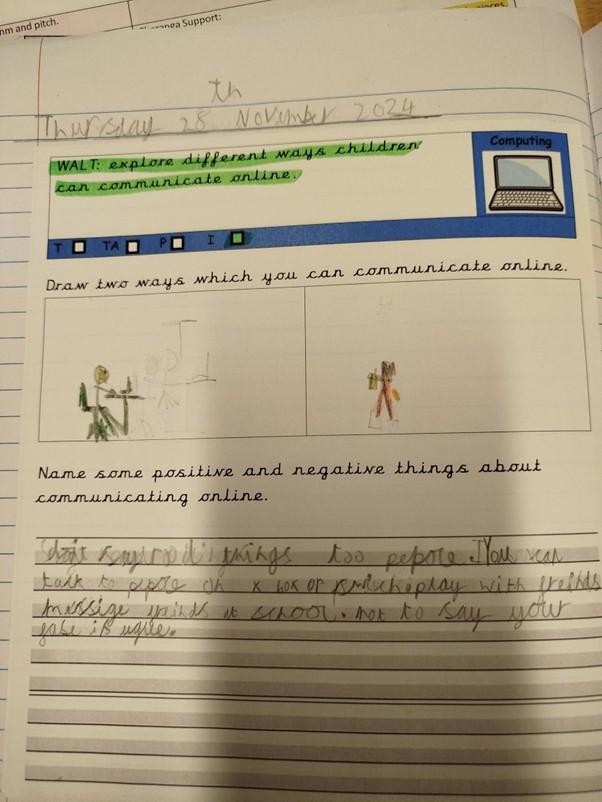 nm and pitch.
Charanga Support:
pieces
th
Thursday 28 November 2024
Computing
WALT: explore different ways children
can communicate online.
T TA P I
Draw two ways which you can communicate online.
Name some positive and negative things about
communicating online.
dont say things too pepole. You can
talk to pepole on x box or swich play with freinds
messige frinds at school. not to say your
fase is uglee.